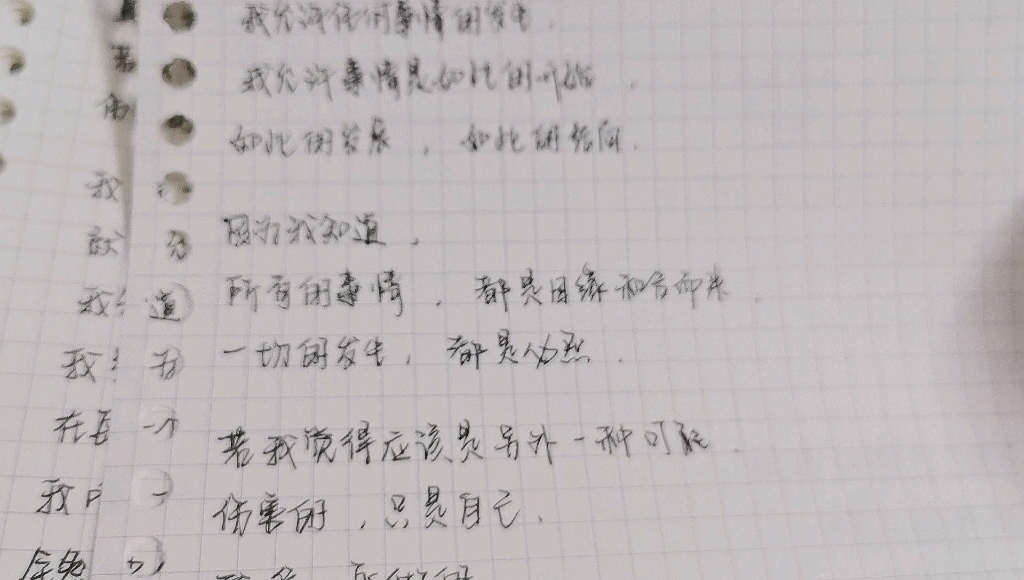 我允许任何事情的发生.
我允许事情是如此的开始.
如此的发展, 如此的结局.
因为我知道,
所有的事情, 都是因缘和合而来.
一切的发生, 都是必然.
若我觉得应该是另外一种可能.
伤害的, 只是自己.